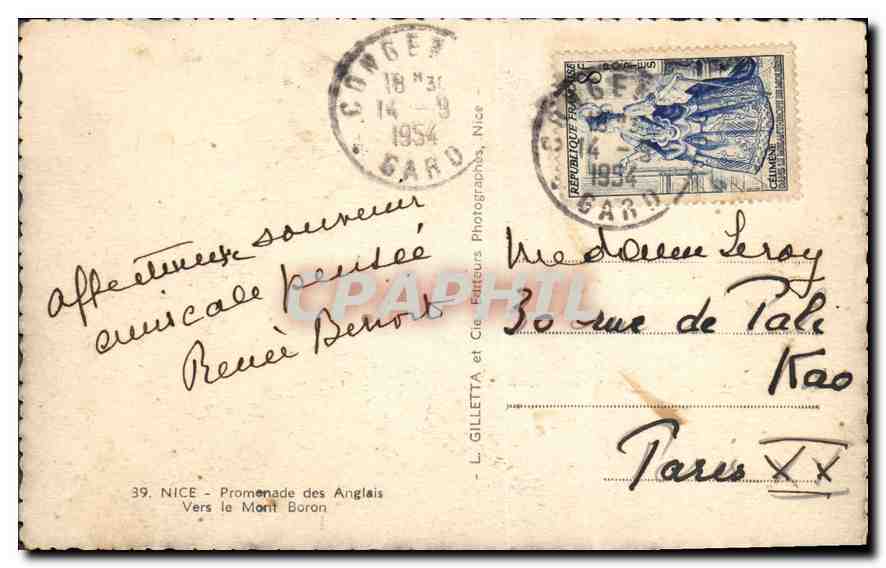 CONGEN
18 H 30
14 - 9
1954
GARD
8F
POSTES
RÉPUBLIQUE FRANÇAISE
CÉLIMÈNE
CONGEN
18 H
14 - 9
1954
GARD
Affectueux souvenir
amicale pensée
Renée Benoit
CPAPHIL
39. NICE - Promenade des Anglais
Vers le Mont Boron
- L. GILLETTA et Cie, Editeurs Photographes, Nice -
Madame Leroy
30 rue de Pali
Kao
Paris XX